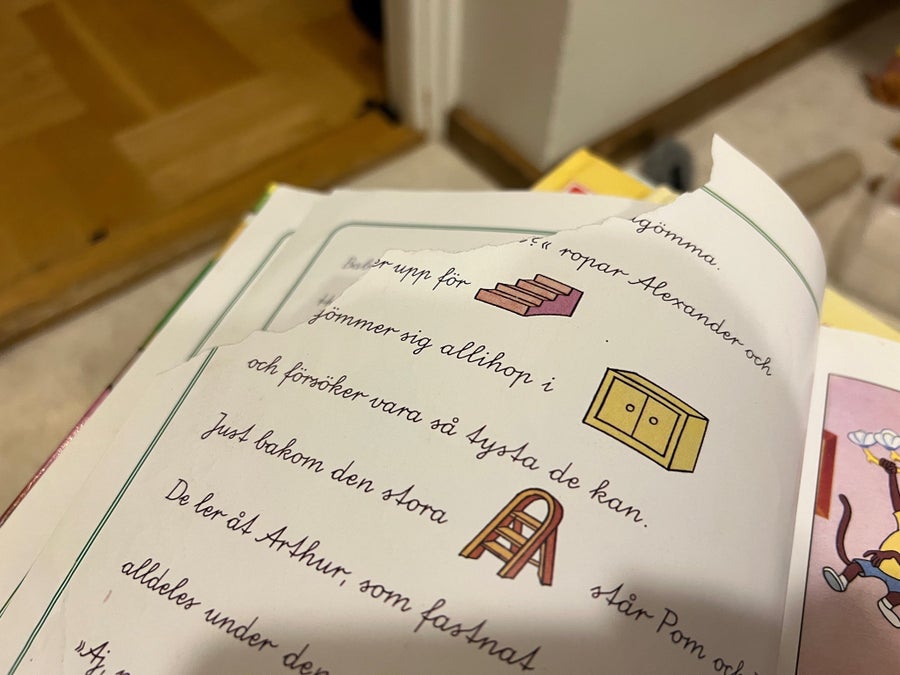 lgömma.
" ropar Alexander och
er upp för
jömmer sig allihop i
och försöker vara så tysta de kan.
Just bakom den stora står Pom och
De ler åt Arthur, som fastnat
alldeles under den
»Aj,